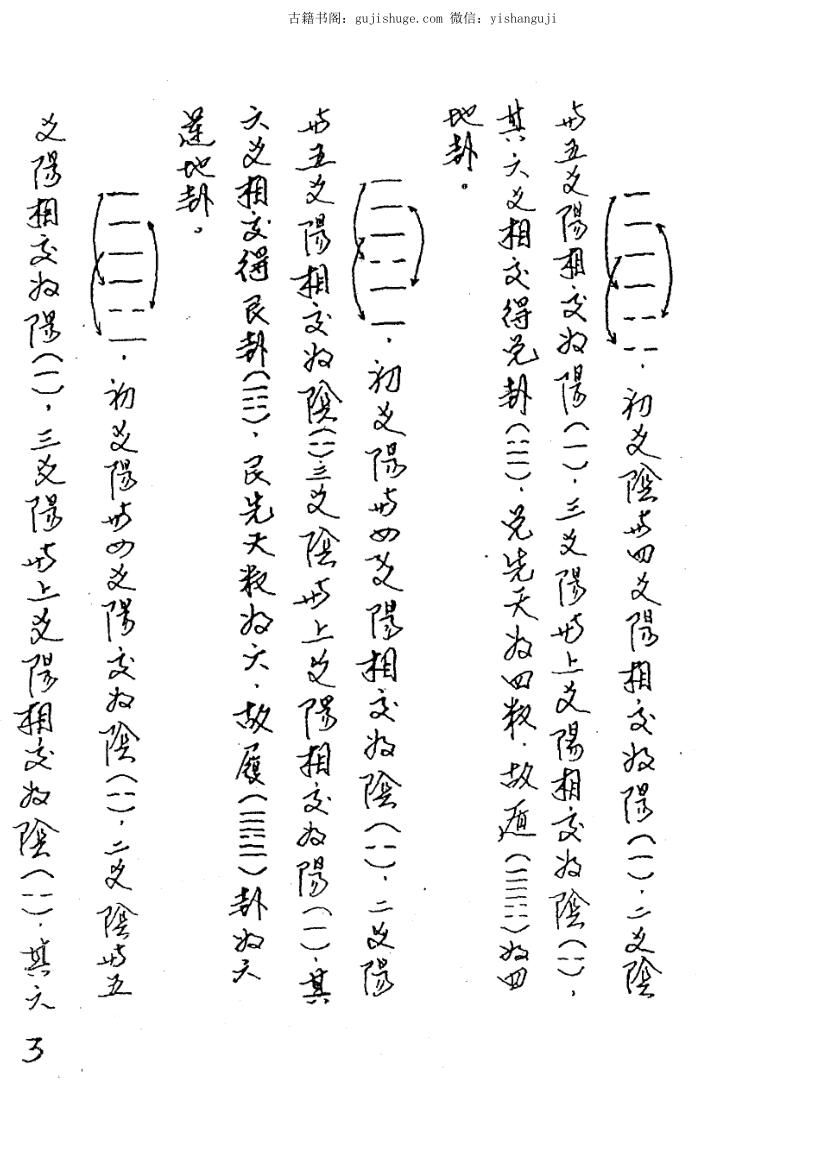 古籍书阁：gujishuge.com 微信：yishanguji
，初爻陰與四爻陽相交为陽（—），二爻陰
與五爻陽相交为陽（—），三爻陽與上爻陽相交为陰（--），
其六爻相交得兑卦（☱），兑先天为四数，故遁（䷠）为四
地卦。
，初爻陽與四爻陽相交为陰（--），二爻陽
與五爻陽相交为陰（--）三爻陰與上爻陽相交为陽（—），其
六爻相交得艮卦（☶），艮先天数为六，故履（䷉）卦为六
運地卦。
，初爻陽與四爻陽交为陰（--），二爻陰與五
爻陽相交为陽（—），三爻陽與上爻陽相交为陰（--），其六
3